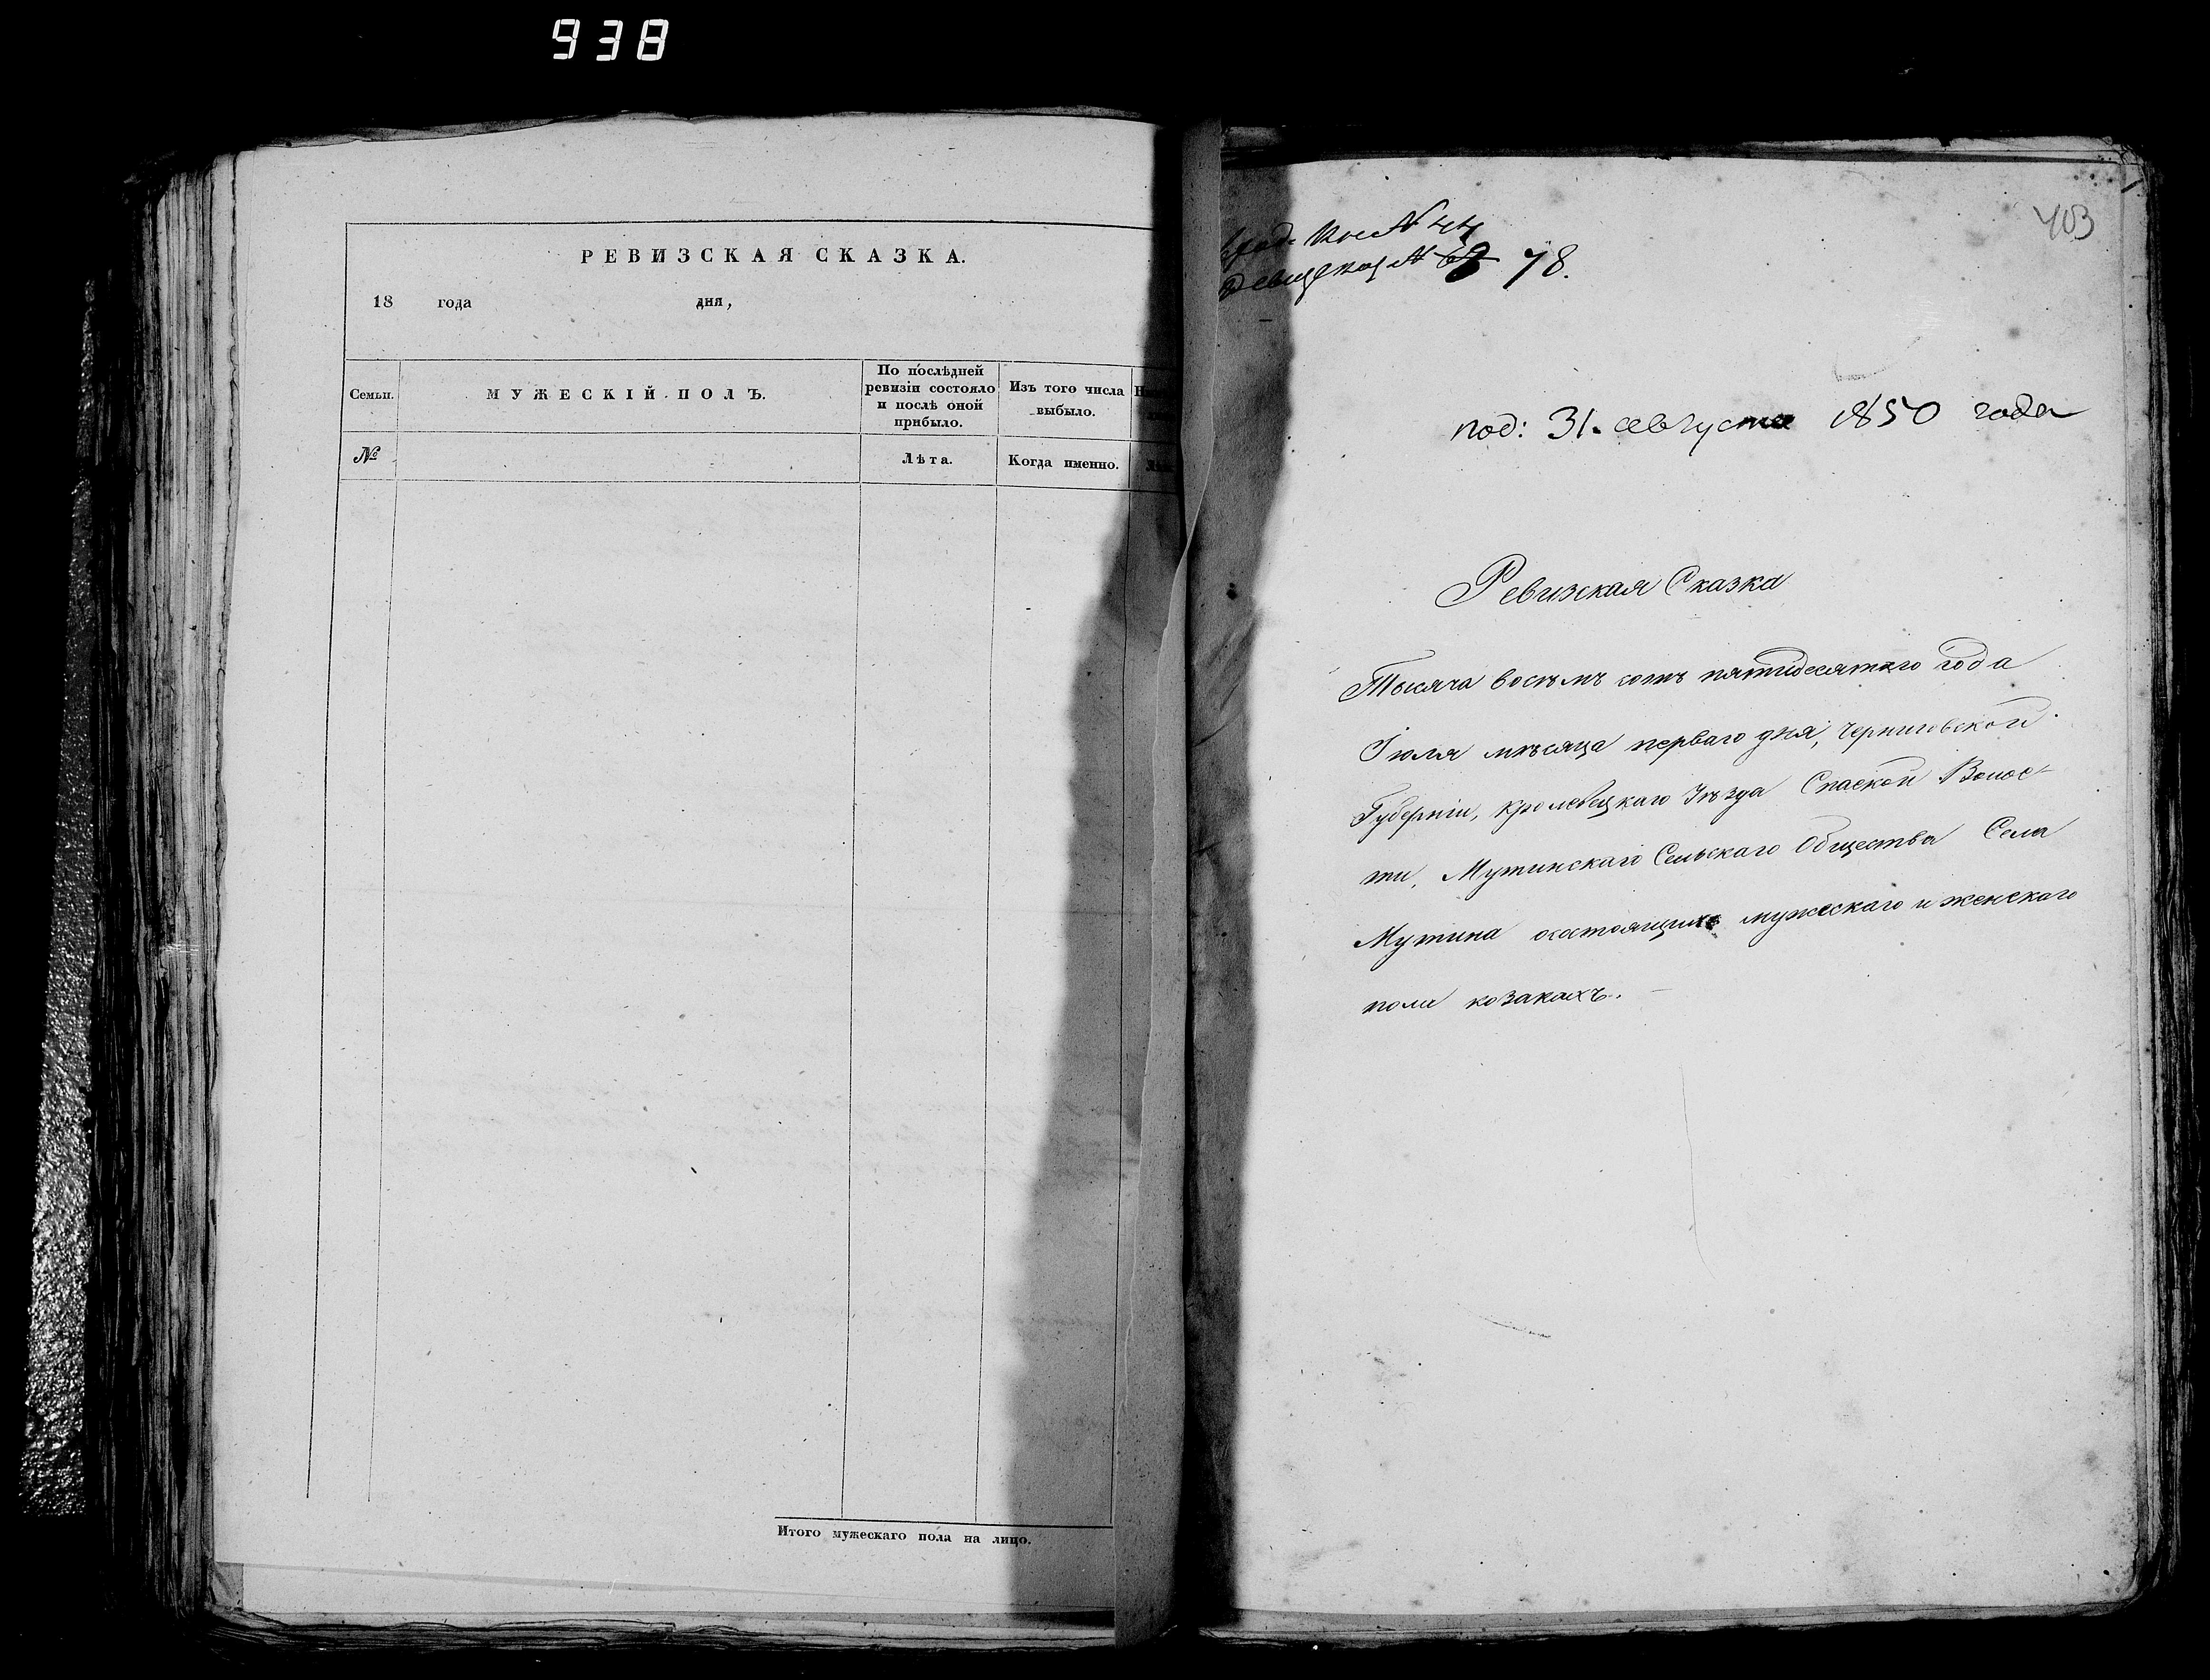 938
РЕВИЗСКАЯ СКАЗКА.
18 года дня,
Семьи. МУЖЕСКІЙ ПОЛЪ. По послѣдней ревизіи состояло и послѣ оной прибыло. Изъ того числа выбыло.
№ Лѣта. Когда именно.
Итого мужескаго пола на лицо.
403
№ 44
№ 78.
под: 31. августа 1850 года
Ревизская Сказка
Тысяча восемъ сотъ пятидесятаго года
Іюля мѣсяца перваго дня, Черниговской
Губерніи, Кролевецкаго Уѣзда Спаской Волос-
ти, Мутинскаго Сельскаго Общества Села
Мутина осостоящихъ мужескаго и женскаго
пола козакахъ.